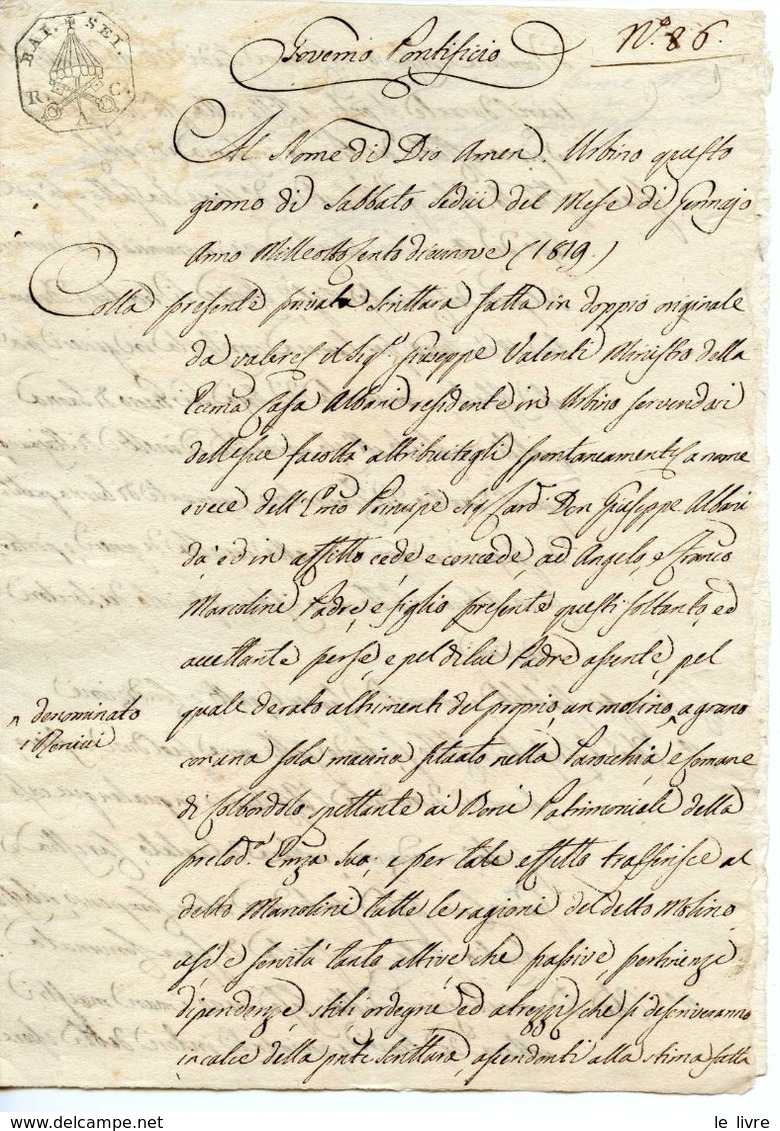 BAI. SEI.
R. C. A.
Governo Pontificio
N.° 86.
Al Nome di Dio Amen. Urbino questo
giorno di Sabbato Sedici del Mese di Gennajo
Anno Milleottocento diannove (1819.)
Colla presente privata Scrittura fatta in doppio originale
da valere il Sig.r Giuseppe Valenti Ministro della
Eccma Casa Albani residente in Urbino servendosi
delle facoltà attribuitegli spontaneamente a nome
e vece dell'Emo Principe Sig. Card. Don Giuseppe Albani
dà ed in affitto cede e concede, ad Angelo, e Franco
Marcolini Padre, e figlio presente questi soltanto, ed
accettante per se, e pel di lui Padre assente, pel
quale de rato altrimenti del proprio, un molino a grano
^ denominato
i Ronici
con una sola macina situato nella Parocchia, e Comune
di Colbordolo spettante ai Beni Patrimoniale della
prelod.a Emza Sua; e per tale effetto trasferisce al
detto Marcolini tutte le ragioni del detto Molino,
usi e servità tanto attive che passive, pertinenze
dipendenze, stili, ordegni ed attrezzi che si descriveranno
in calce della pnte Scrittura, ascendenti alla stima fatta
le livre